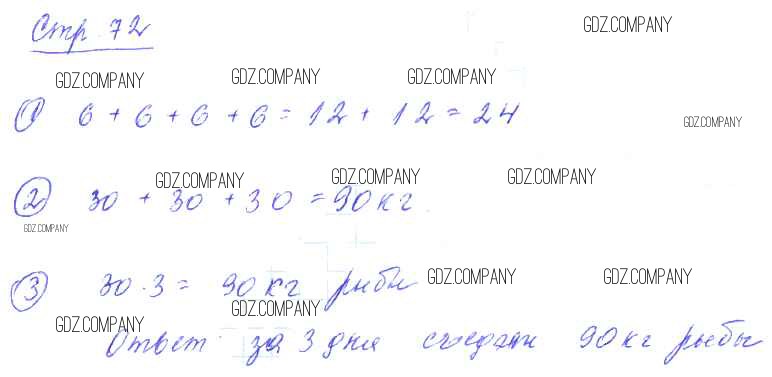 Стр. 72
GDZ.COMPANY
GDZ.COMPANY GDZ.COMPANY GDZ.COMPANY
1 6 + 6 + 6 + 6 = 12 + 12 = 24
GDZ.COMPANY
GDZ.COMPANY GDZ.COMPANY GDZ.COMPANY
2 30 + 30 + 30 = 90 кг
GDZ.COMPANY
3 30 · 3 = 90 кг рыбы
GDZ.COMPANY GDZ.COMPANY
GDZ.COMPANY GDZ.COMPANY
Ответ: за 3 дня съедали 90 кг рыбы